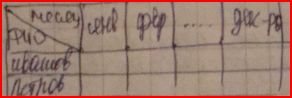 месяц
ФИО янв фев ..... дек-рь
Иванов
Петров